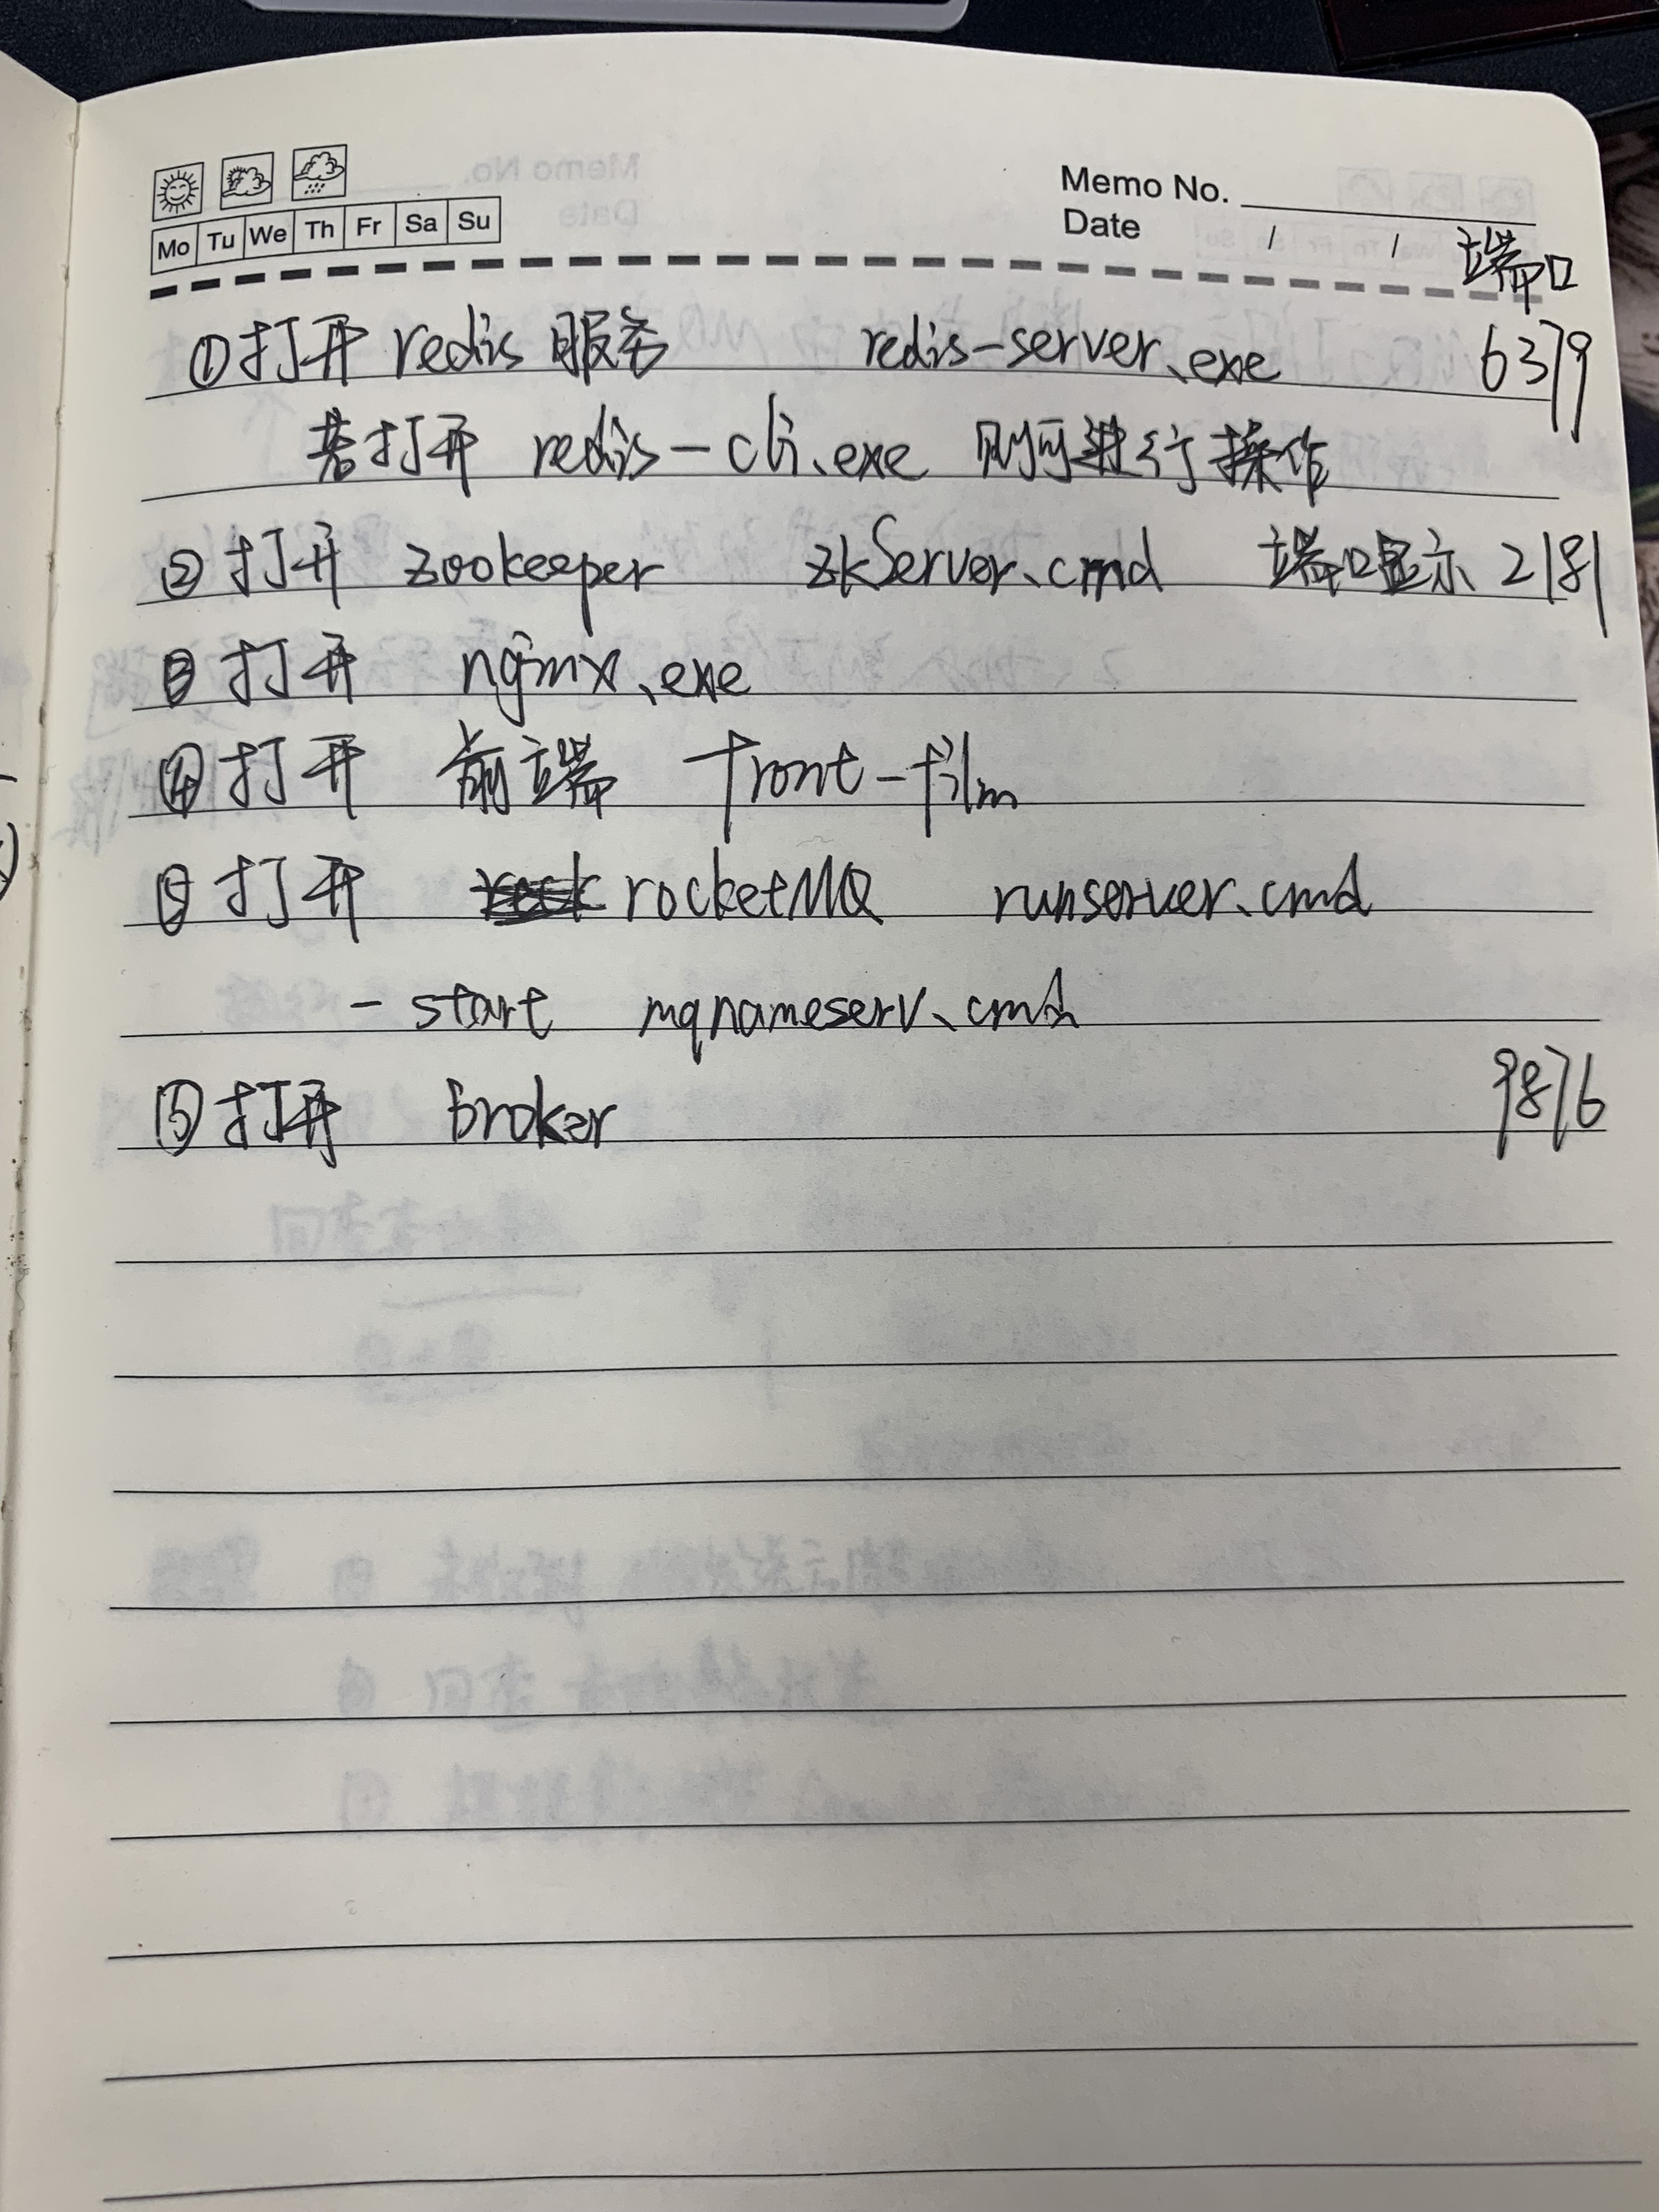 Memo No.
Mo Tu We Th Fr Sa Su
Date / /
端口
①打开 redis 服务 redis-server.exe 6379
若打开 redis-cli.exe 则可进行操作
② 打开 zookeeper zkServer.cmd 端口显示 2181
③ 打开 nginx.exe
④ 打开 前端 front-film
⑤ 打开 rocketMQ runserver.cmd
- start mqnameserv.cmd
⑤ 打开 broker 9876